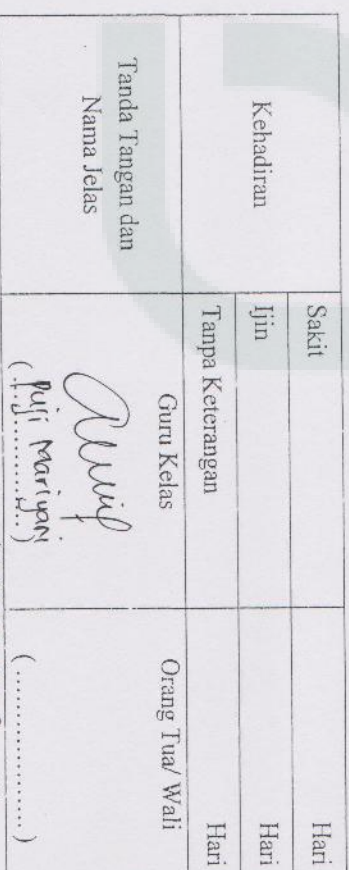 Kehadiran
Sakit Hari
Ijin Hari
Tanpa Keterangan Hari
Tanda Tangan dan
Nama Jelas
Guru Kelas
Orang Tua/ Wali
( Puji Mariyani )
(....................)